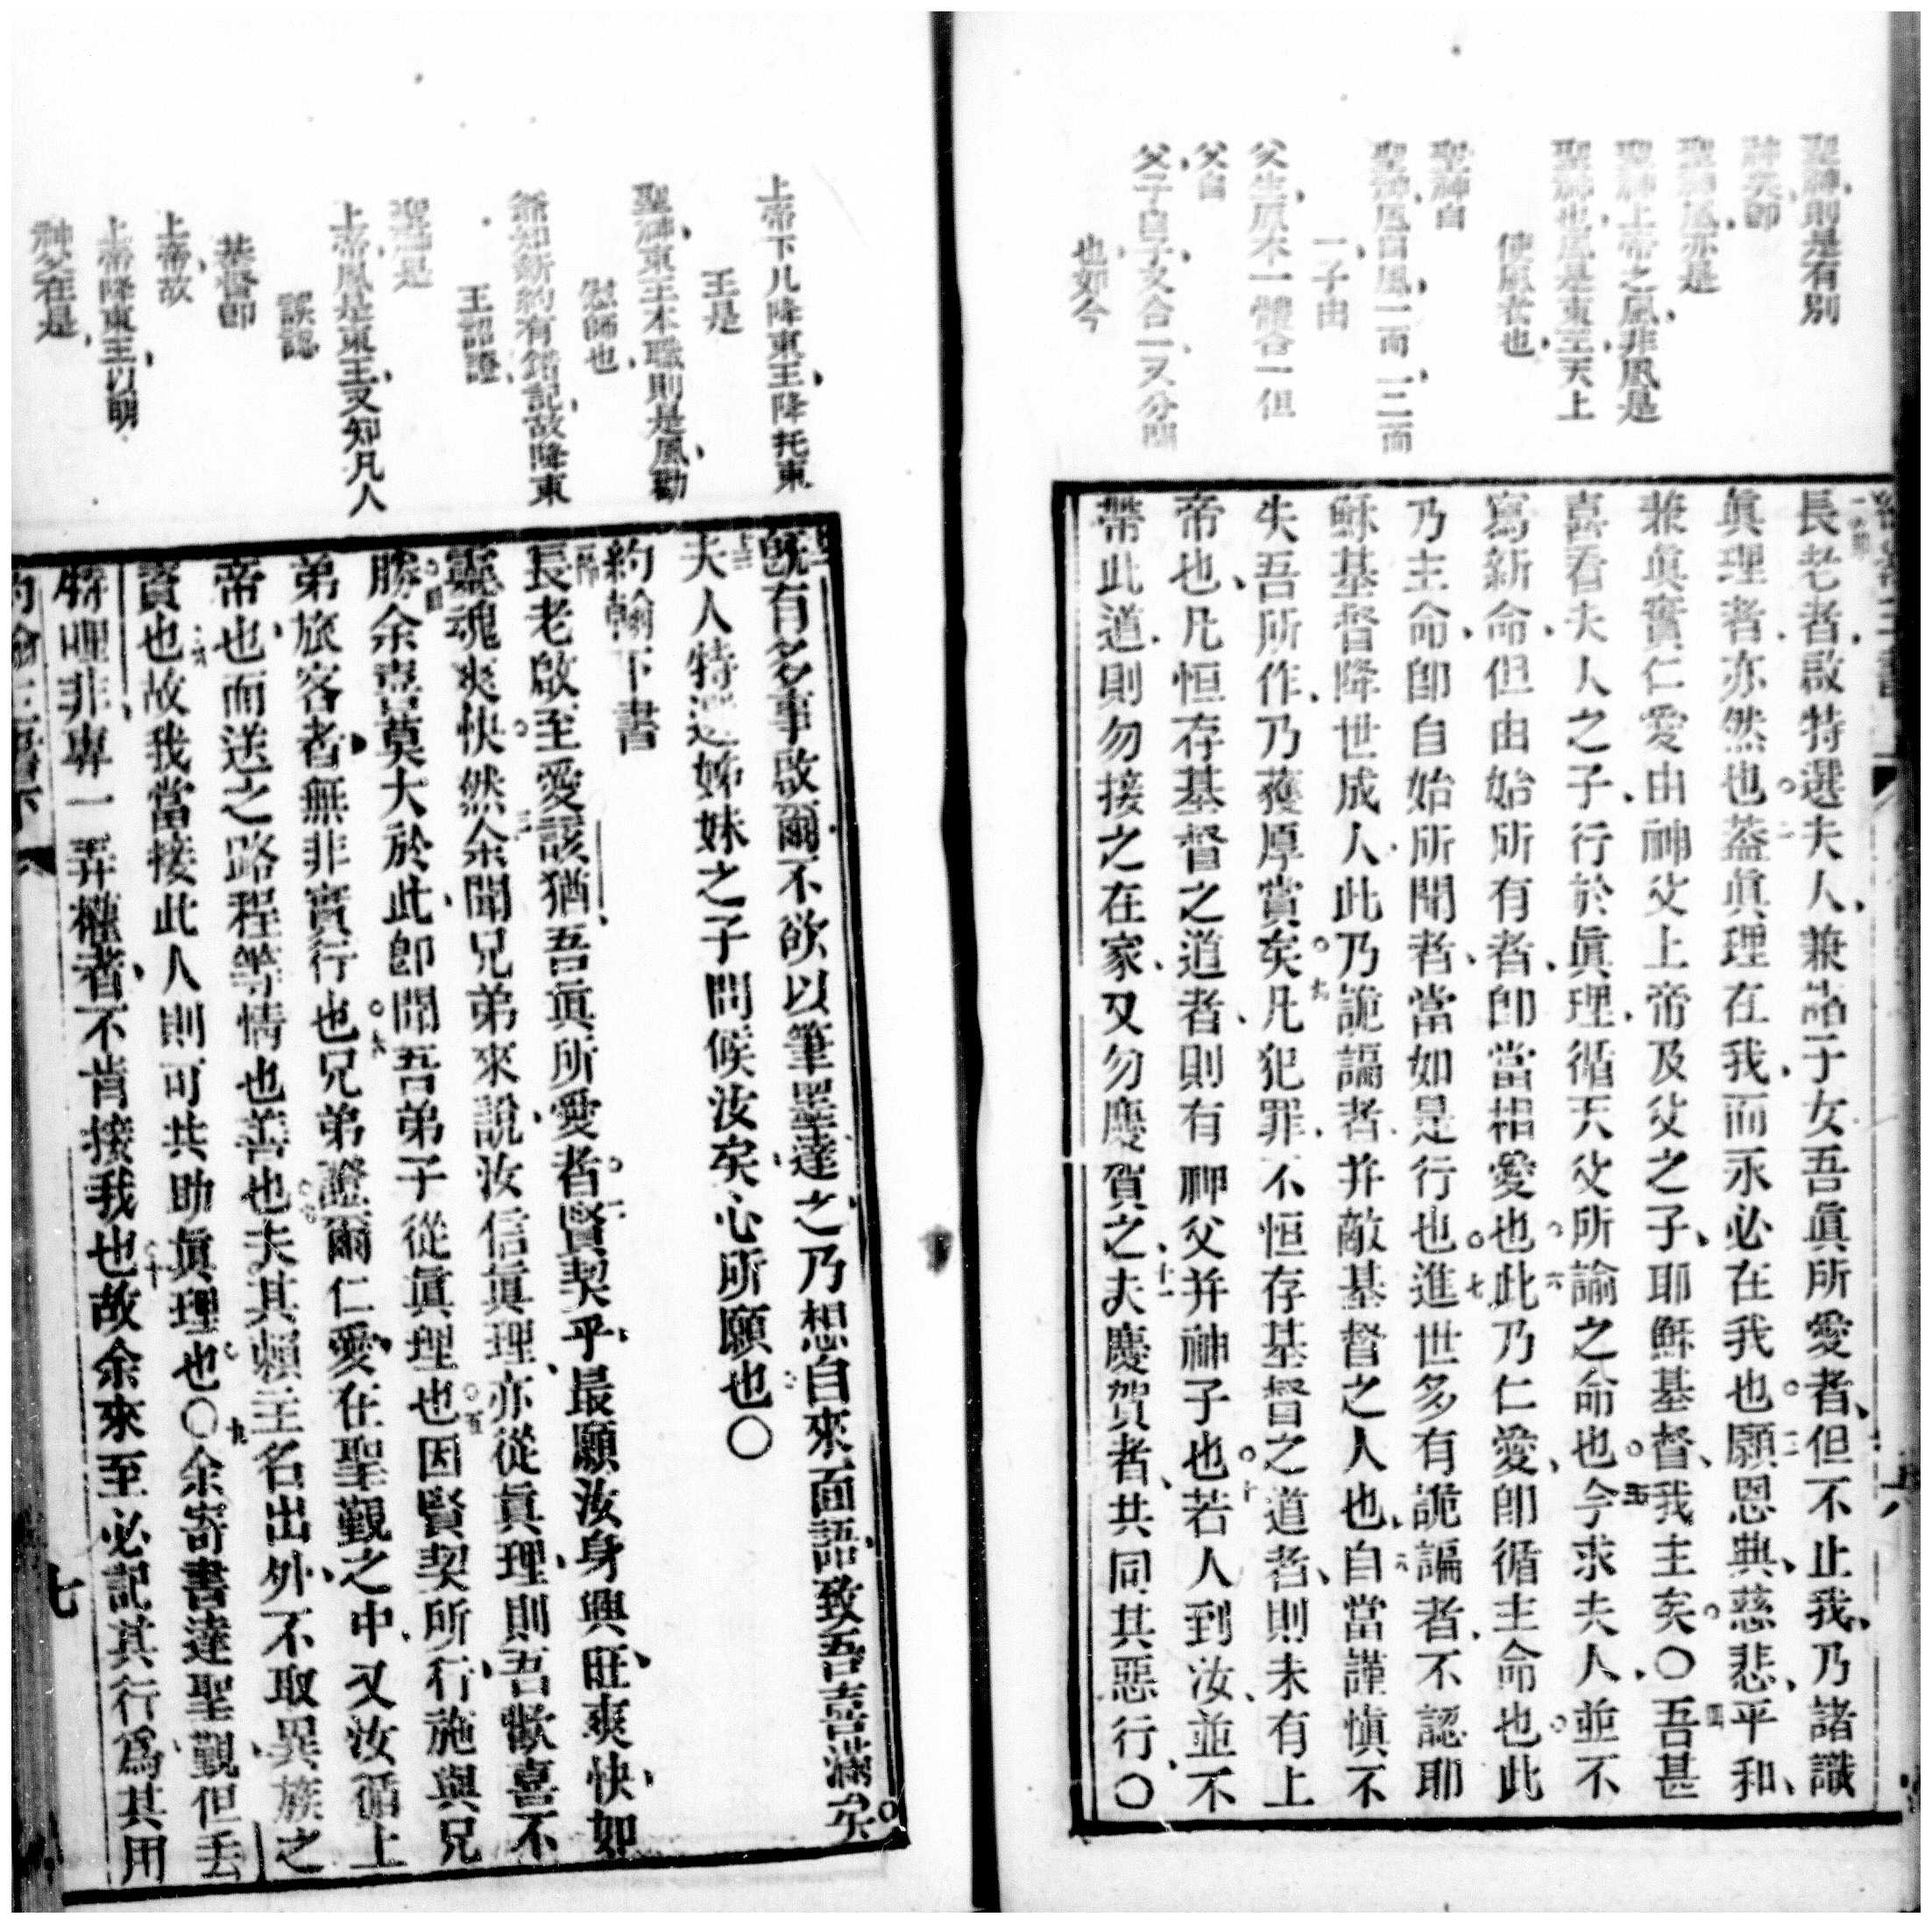 聖神則是有別
聖神風亦是
聖神上帝之風非風是
聖神也風是東王天上
使風者也
聖神自
聖神風自風一而三三而
一子由
父生原本一體合一但
父自
父子自子又合一又分開
也如今
長老者啟特選夫人兼諸子女吾眞所愛者但不止我乃諸識
眞理者亦然也二葢眞理在我而永必在我也三願恩典慈悲平和
兼眞實仁愛由神父上帝及父之子耶穌基督我主矣〇四吾甚
喜看夫人之子行於眞理循天父所諭之命也五今求夫人並不
寫新命但由始所有者卽當相愛也六此乃仁愛卽循主命也此
乃主命卽自始所聞者當如是行也七進世多有詭譎者不認耶
穌基督降世成人此乃詭譎者并敵基督之人也八自當謹慎不
失吾所作乃獲厚賞矣九凡犯罪不恒存基督之道者則未有上
帝也凡恒存基督之道者則有神父并神子也十若人到汝並不
帶此道則勿接之在家又勿慶賀之十一夫慶賀者共同其惡行〇
上帝下凡降東王降托東
王是
聖神東王本職則是風勸
慰師也
爺知新約有錯記故降東
王詔證
聖神是
上帝風是東王又知凡人
誤認
基督卽
上帝故
上帝降東王以明
神父在是
旣有多事啟爾不欲以筆墨達之乃想自來面語致吾喜滿矣
夫人特選姊妹之子問候汝矣心所願也〇
約翰下書
長老啟至愛該猶吾眞所愛者二賢契乎最願汝身興旺爽快如
靈魂爽快然三余聞兄弟來說汝信眞理亦從眞理則吾歡喜不
勝四余喜莫大於此卽聞吾弟子從眞理也五因賢契所行施與兄
弟旅客者無非實行也六兄弟證爾仁愛在聖觀之中又汝循上
帝也而送之路程等情也善也夫其賴主名出外不取異族之
賫也八故我當接此人則可共助眞理也〇九余寄書達聖觀但丢
特哩非專一弄權者不肯接我也十故余來至必記其行爲其用
七